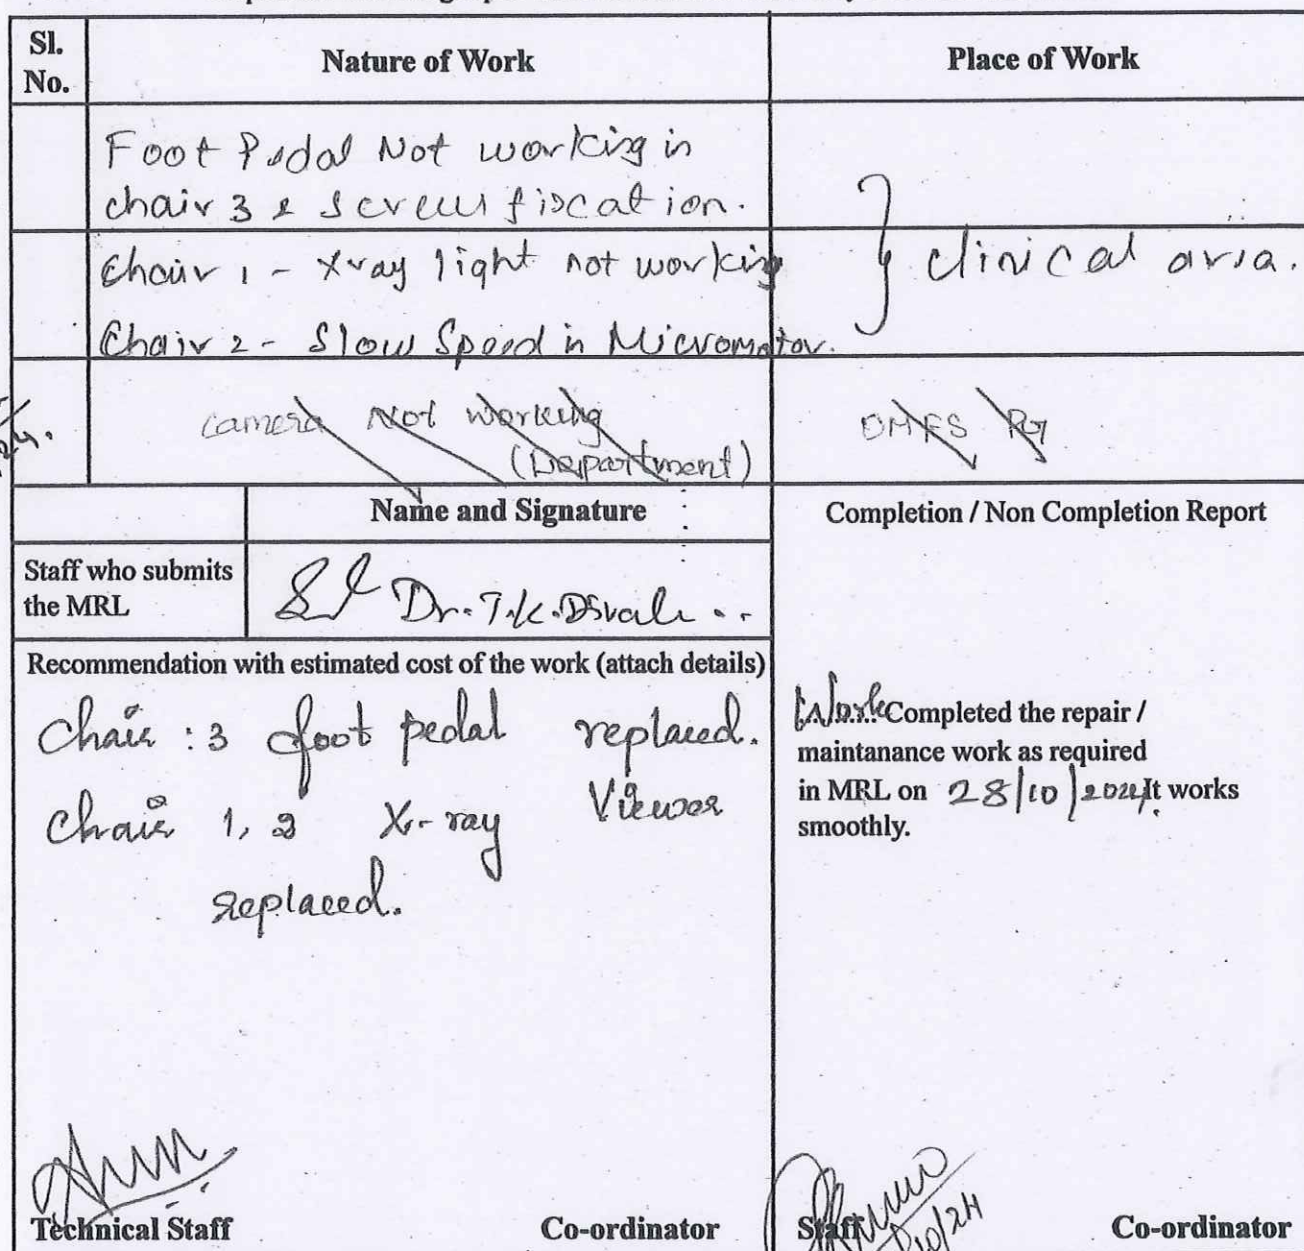 Sl. No.
Nature of Work
Place of Work
Foot Pedal Not working in
chair 3 & screw fixcation.
Chair 1 - Xray light not working
clinical area.
Chair 2 - Slow Speed in Micromotor.
Camera Not Working
(Department)
OMFS
Name and Signature
Completion / Non Completion Report
Staff who submits
the MRL
Dr. T.K.
Recommendation with estimated cost of the work (attach details)
Chair : 3 foot pedal replaced.
Chair 1, 2 X-ray Viewer
replaced.
Work Completed the repair /
maintanance work as required
in MRL on 28/10/2024 It works
smoothly.
Technical Staff
Co-ordinator
Staff
Co-ordinator